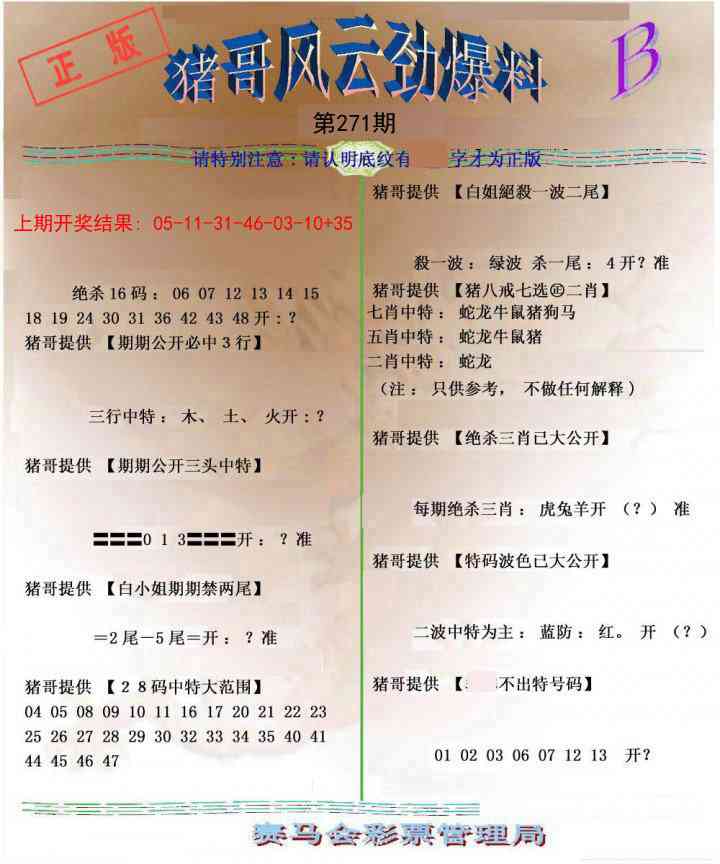 正版
猪哥风云劲爆料
B
第271期
请特别注意：请认明底纹有 字才为正版
上期开奖结果: 05-11-31-46-03-10+35
绝杀16码：06 07 12 13 14 15
18 19 24 30 31 36 42 43 48开:？
猪哥提供 【期期公开必中3行】
三行中特：木、 土、 火开:？
猪哥提供 【期期公开三头中特】
〓〓〓0 1 3〓〓〓开：？准
猪哥提供 【白小姐期期禁两尾】
＝2尾－5尾＝开：？准
猪哥提供 【２８码中特大范围】
04 05 08 09 10 11 16 17 20 21 22 23
25 26 27 28 29 30 32 33 34 35 40 41
44 45 46 47
猪哥提供 【白姐絕殺一波二尾】
殺一波：绿波 杀一尾：4开？准
猪哥提供 【猪八戒七选㊣二肖】
七肖中特：蛇龙牛鼠猪狗马
五肖中特：蛇龙牛鼠猪
二肖中特：蛇龙
（注：只供参考， 不做任何解释)
猪哥提供 【绝杀三肖已大公开】
每期绝杀三肖：虎兔羊开 （？） 准
猪哥提供 【特码波色已大公开】
二波中特为主：蓝防：红。 开 （？）
猪哥提供 【 不出特号码】
01 02 03 06 07 12 13 开？
赛马会彩票管理局